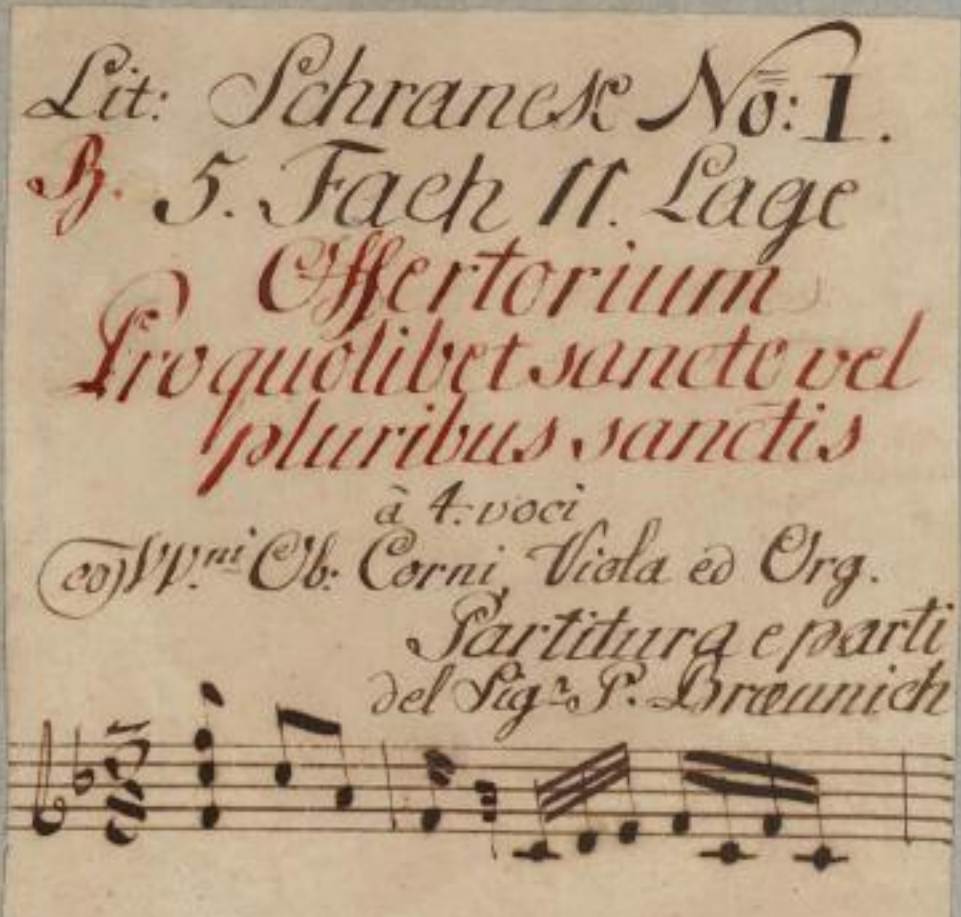 Lit: Schranck No: 1.
B. 5. Fach 11. Lage
Offertorium
Pro quolibet sancto vel
pluribus sanctis
à 4. voci
co VV.ni Ob: Corni, Viola ed Org.
Partitura e parti
del Sigr P. Breunich